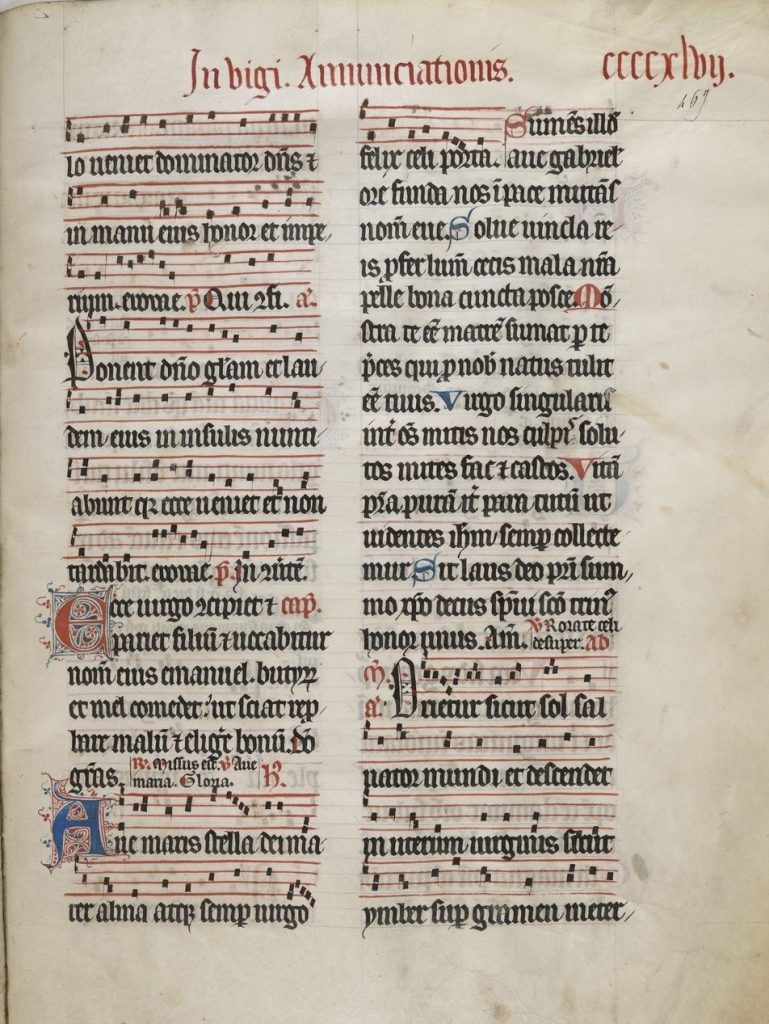 In vigi. Annunciationis.
ccccxlvij.
467
lo veniet dominator dñs ⁊
in manu eius honor et impe
rium. evovae. p̃ Qui ɔfi. añ.
Ponent dño gl̃am et lau
dem eius in insulis nunti
abunt qꝛ ecce veniet et non
tardabit. evovae. p̃. In ɔv̾tẽ.
Ecce virgo ɔcipiet ⁊ cap̃.
pariet filiũ ⁊ vocabitur
nom̃ eius emanuel. butyꝝ
et mel comedet ut sciat rep
bare malũ ⁊ elig̾e bonũ. Dõ
grãs. R̃. Missus est. v̾ Ave
maria. Gloria. h̾.
Ave maris stella dei ma
ter alma atqꝫ semꝑ virgo
felix celi porta. Sumẽs illõ
ave gabriel
ore funda nos ĩ pace mutãs
nom̃ eve. Solve vincla re
is ꝓfer lum̃ cecis mala nr̃a
pelle bona cuncta posce. Mõ
stra te eẽ matrẽ sumat ꝑ te
p̃ces qui ꝓ nob̾ natus tulit
eẽ tuus. Virgo singularis
int̾ oẽs mitis nos culpis solu
tos mites fac ⁊ castos. Vitã
p̃sta purã it̾ para tutũ ut
videntes ihm̃ semꝑ collete
mur Sit laus deo pr̃i sum
mo xp̃o decus spũi scõ trin᷒
honor unus. Am̃. v̾ Rorate celi
desuper. Ad
m̃.
a. Orietur sicut sol sal
vator mundi et descendet
in uterum virginis sicut
ymber suꝑ gramen meter